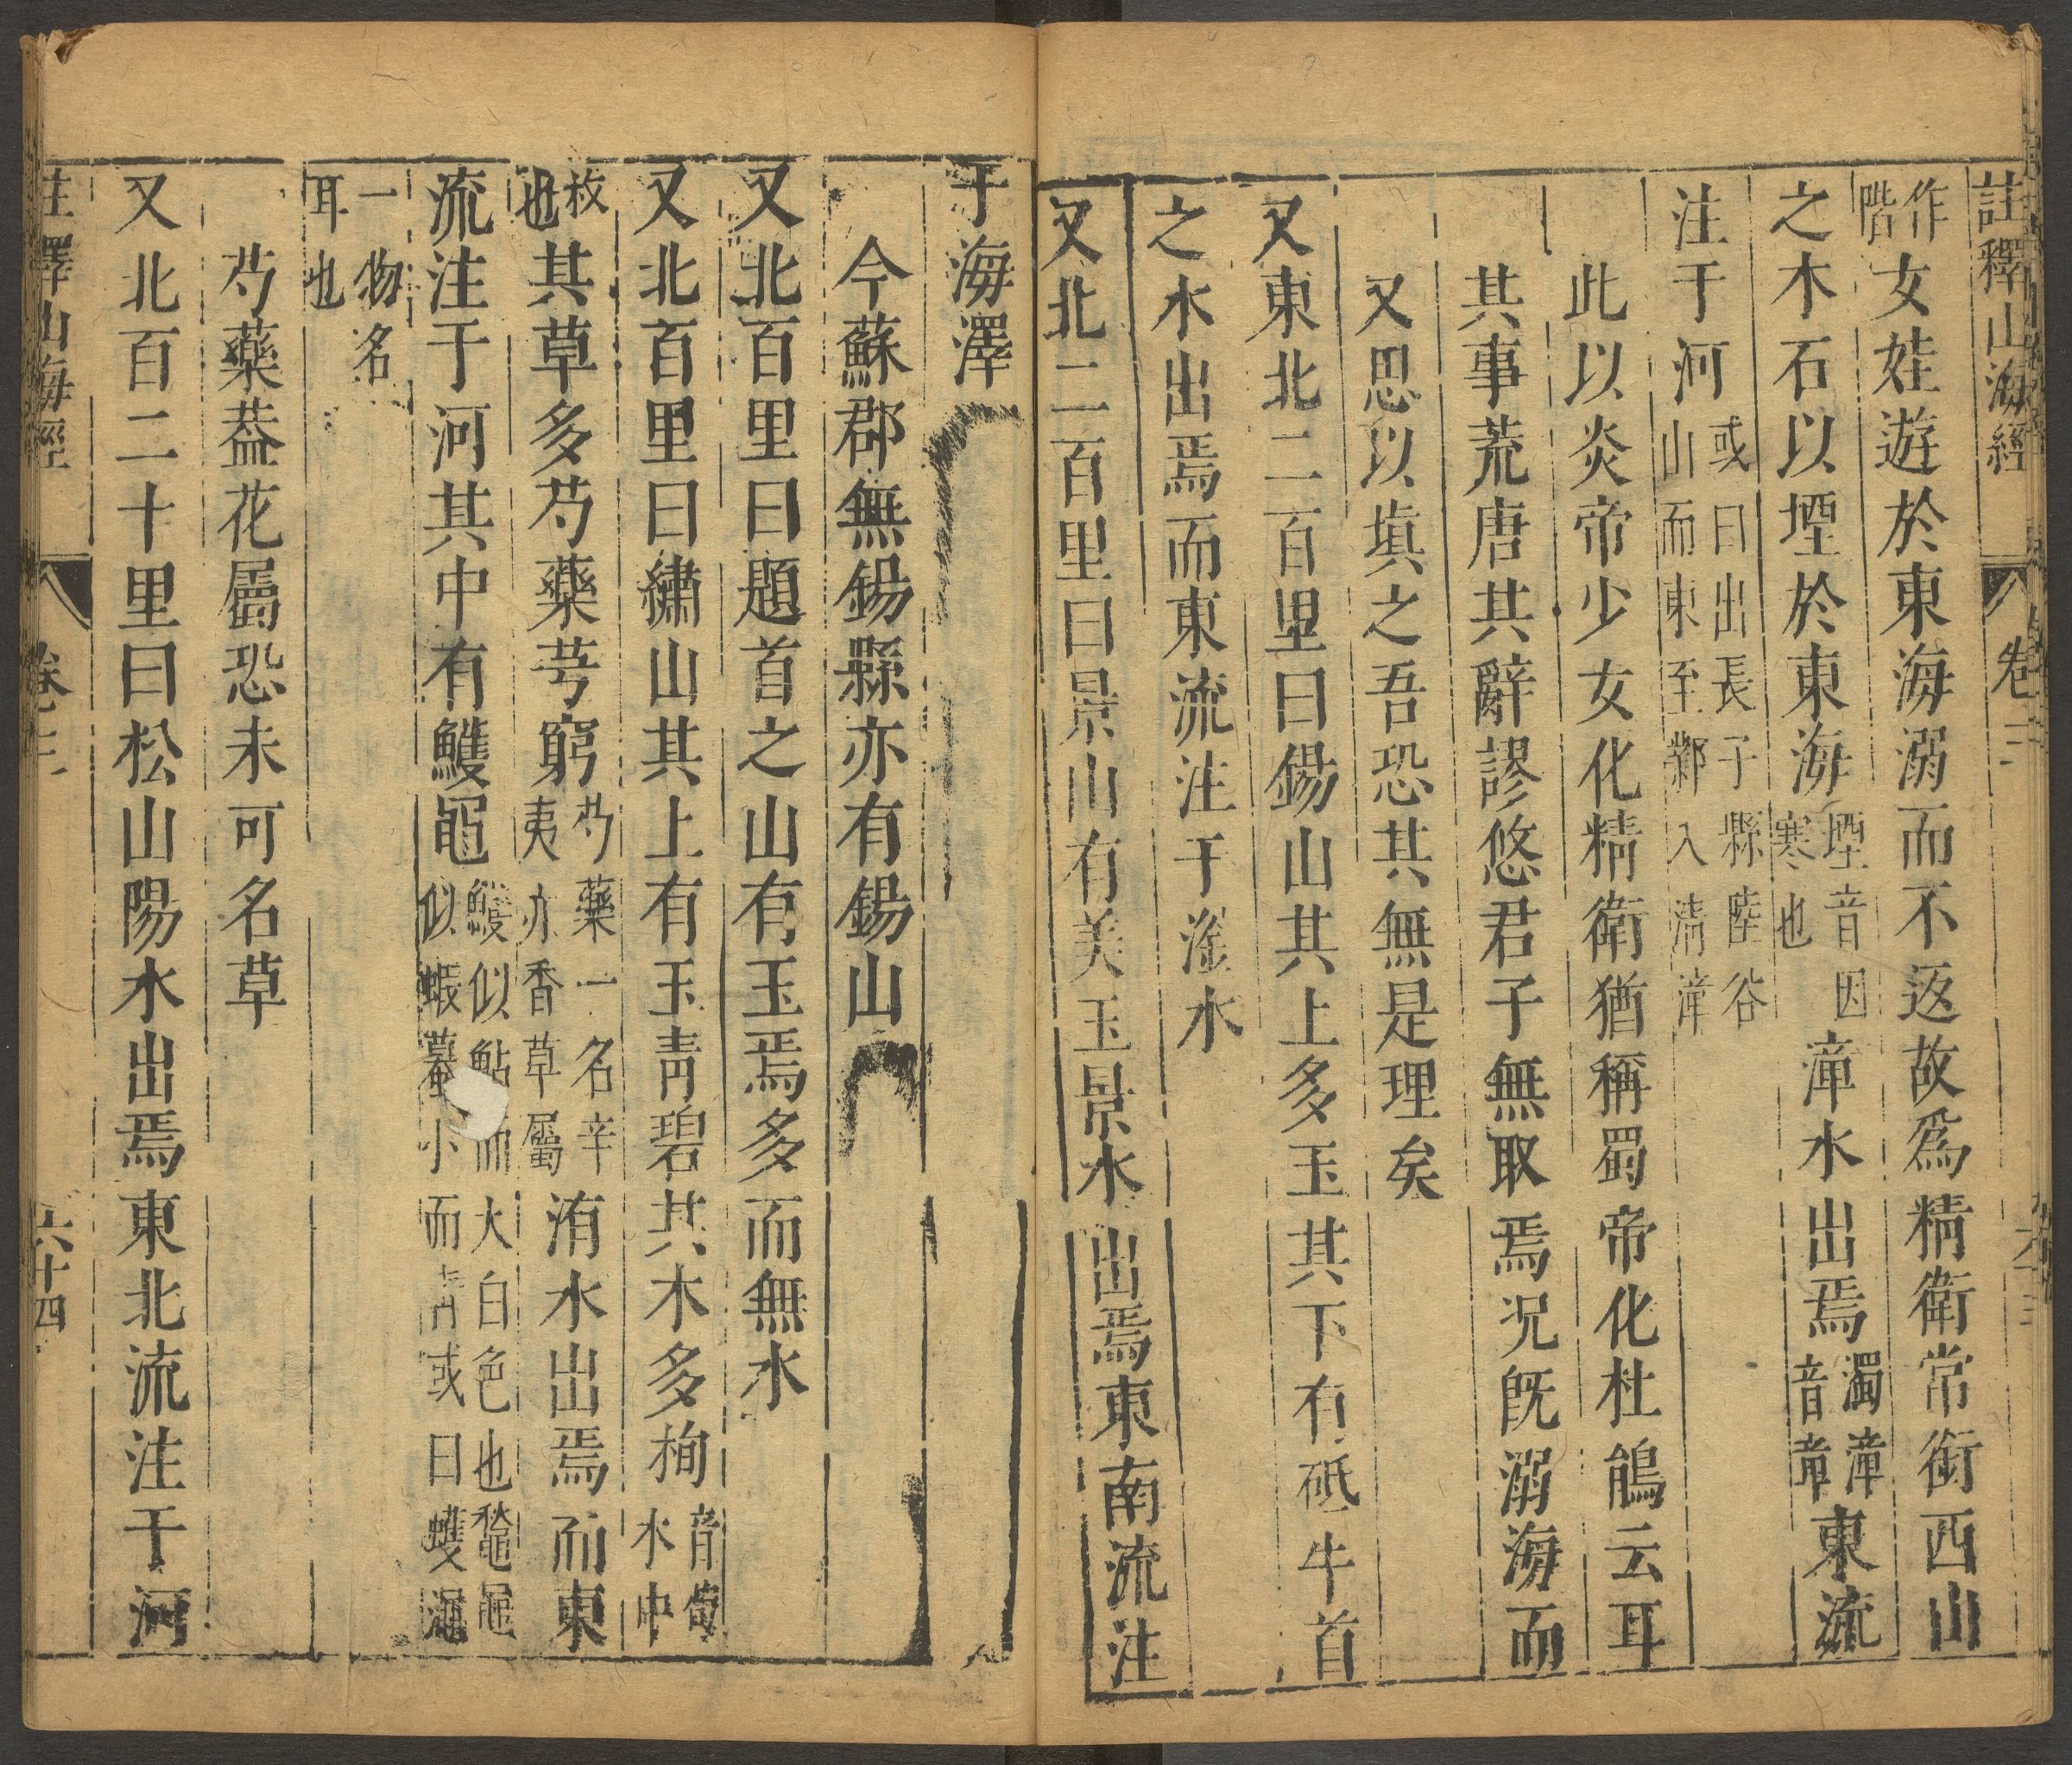 註釋山海經 卷三 六十三
作階女娃遊於東海溺而不返故爲精衛常銜西山
之木石以堙於東海堙音因塞也漳水出焉濁漳音章東流
注于河或曰出長子縣鹿谷山而東至鄴入清漳
此以炎帝少女化精衛猶稱蜀帝化杜鵑云耳
其事荒唐其辭謬悠君子無取焉况既溺海而
又思以塡之吾恐其無是理矣
又東北二百里曰錫山其上多玉其下有砥牛首
之水出焉而東流注于滏水
又北二百里曰景山有美玉景水出焉東南流注
于海澤
今蘇郡無錫縣亦有錫山
又北百里曰題首之山有玉焉多而無水
又北百里曰繡山其上有玉靑碧其木多栒音荀木中
枚也其草多芍藥芎窮芍藥一名辛夷亦香草屬洧水出焉而東
流注于河其中有鱯黽鱯似鮎而大白色也鼁黽似蝦蟇小而靑或曰鱯黽
一物名耳也
芍藥葢花屬恐未可名草
又北百二十里曰松山陽水出焉東北流注于河
註釋山海經 卷三 六十四